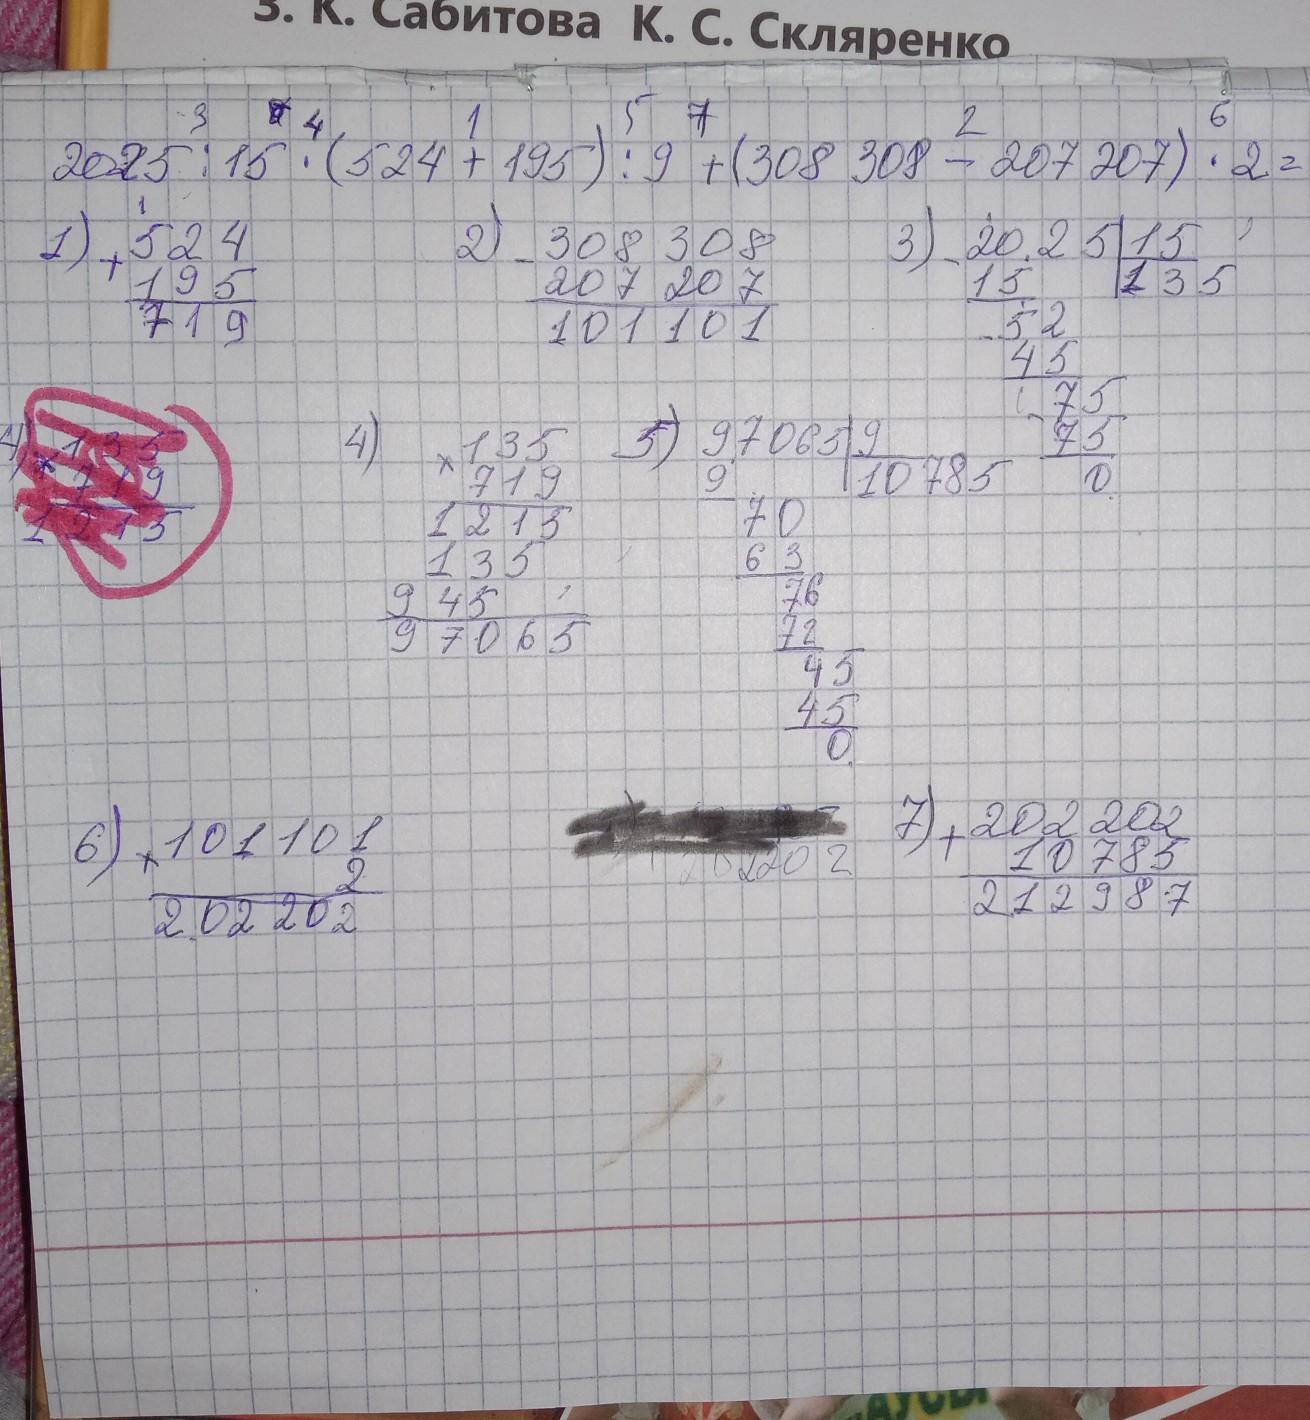 З. К. Сабитова К. С. Скляренко
3 4 1 5 7 2 6
2025 : 15 · (524 + 195) : 9 + (308 308 - 207 207) · 2 =
1) + 524
195
719
2) - 308 308
207 207
101 101
3) - 2025 | 15
15 | 135
- 52
45
- 75
75
0
4) × 135
719
1215
135
945
97065
5) 97065 | 9
9 | 10785
70
63
76
72
45
45
0
6) × 101 101
2
202 202
202202
7) + 202 202
10 785
212 987